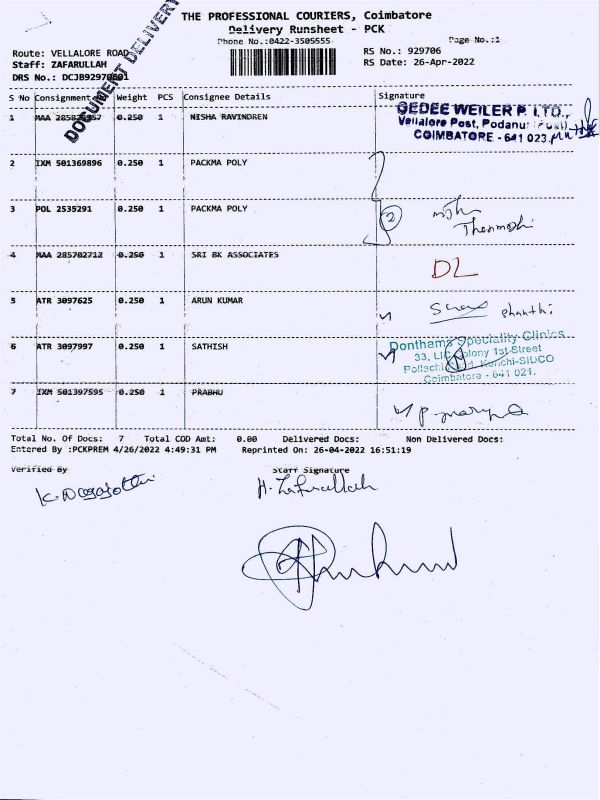 THE PROFESSIONAL COURIERS, Coimbatore
Delivery Runsheet - PCK
Phone No.:0422-3505555
Page No.:1
Route: VELLALORE ROAD
Staff: ZAFARULLAH
DRS No.: DCJB929706
RS No.: 929706
RS Date: 26-Apr-2022
DOCUMENT DELIVERY
S No Consignment Weight PCS Consignee Details Signature
1 MAA 0.250 1 NISHA RAVINDREN
GEDEE WEILER P. LTD.,
Vellalore Post, Podanur
COIMBATORE - 641 023.
2 IXM 501369896 0.250 1 PACKMA POLY
3 POL 2535291 0.250 1 PACKMA POLY
2
4 MAA 285702712 0.250 1 SRI BK ASSOCIATES
DL
5 ATR 3097625 0.250 1 ARUN KUMAR
Shanthi
6 ATR 3097997 0.250 1 SATHISH
Donthams Speciality Clinics
33, LIC Colony 1st Street
Pollachi Kurichi-SIDCO
Coimbatore - 641 021.
7 IXM 501397595 0.250 1 PRABHU
Total No. Of Docs: 7 Total COD Amt: 0.00 Delivered Docs: Non Delivered Docs:
Entered By :PCKPREM 4/26/2022 4:49:31 PM Reprinted On: 26-04-2022 16:51:19
Verified By Staff Signature
H. Zafurallah